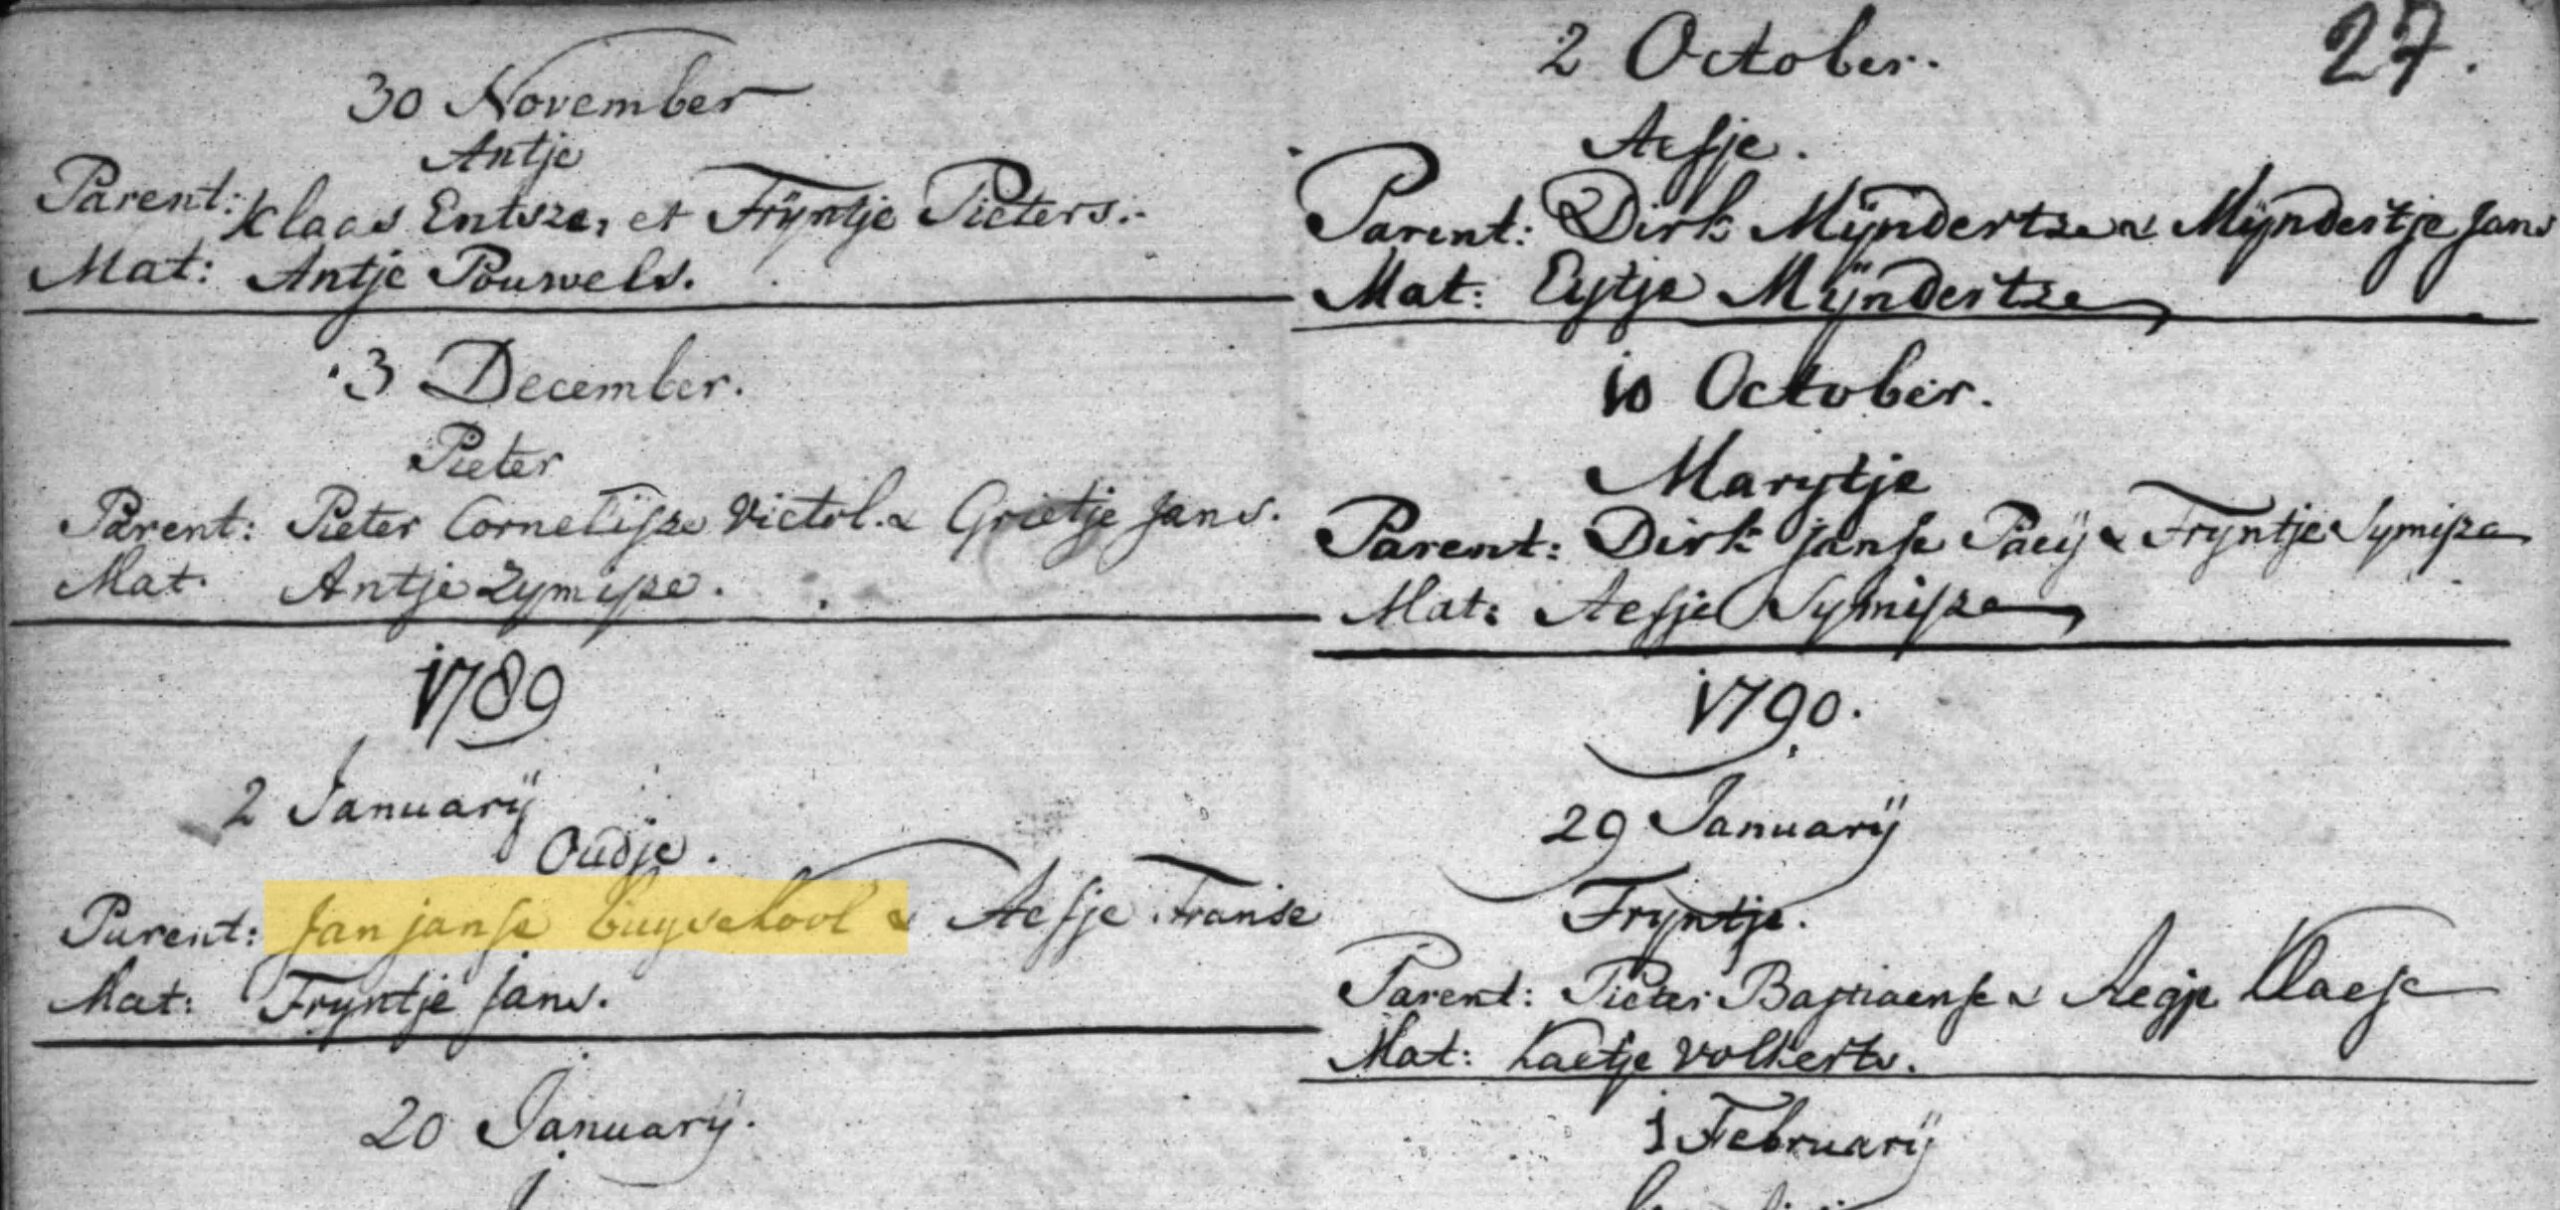 30 November
Antje
Parent: Klaas Entsze, et Tryntje Pieters.
Mat: Antje Pouwels.
3 December.
Pieter
Parent: Pieter Cornelisze Victol. & Grietje Jans.
Mat. Antje Zymisze.
1789
2 January
Oudje.
Parent: Jan Janse Cuyschool & Aefje Franse
Mat: Tryntje Jans.
20 January.
27.
2 October.
Aefje.
Parent: Dirk Myndertze & Myndertje Jans
Mat: Eytje Myndertze
10 October.
Marytje
Parent: Dirk Janse Paeij & Tryntje Symisze
Mat: Aefje Symisze
1790.
29 January
Tryntje.
Parent: Pieter Bastiaense & Aegje Klaese
Mat: Kaetje Volkerts.
1 February